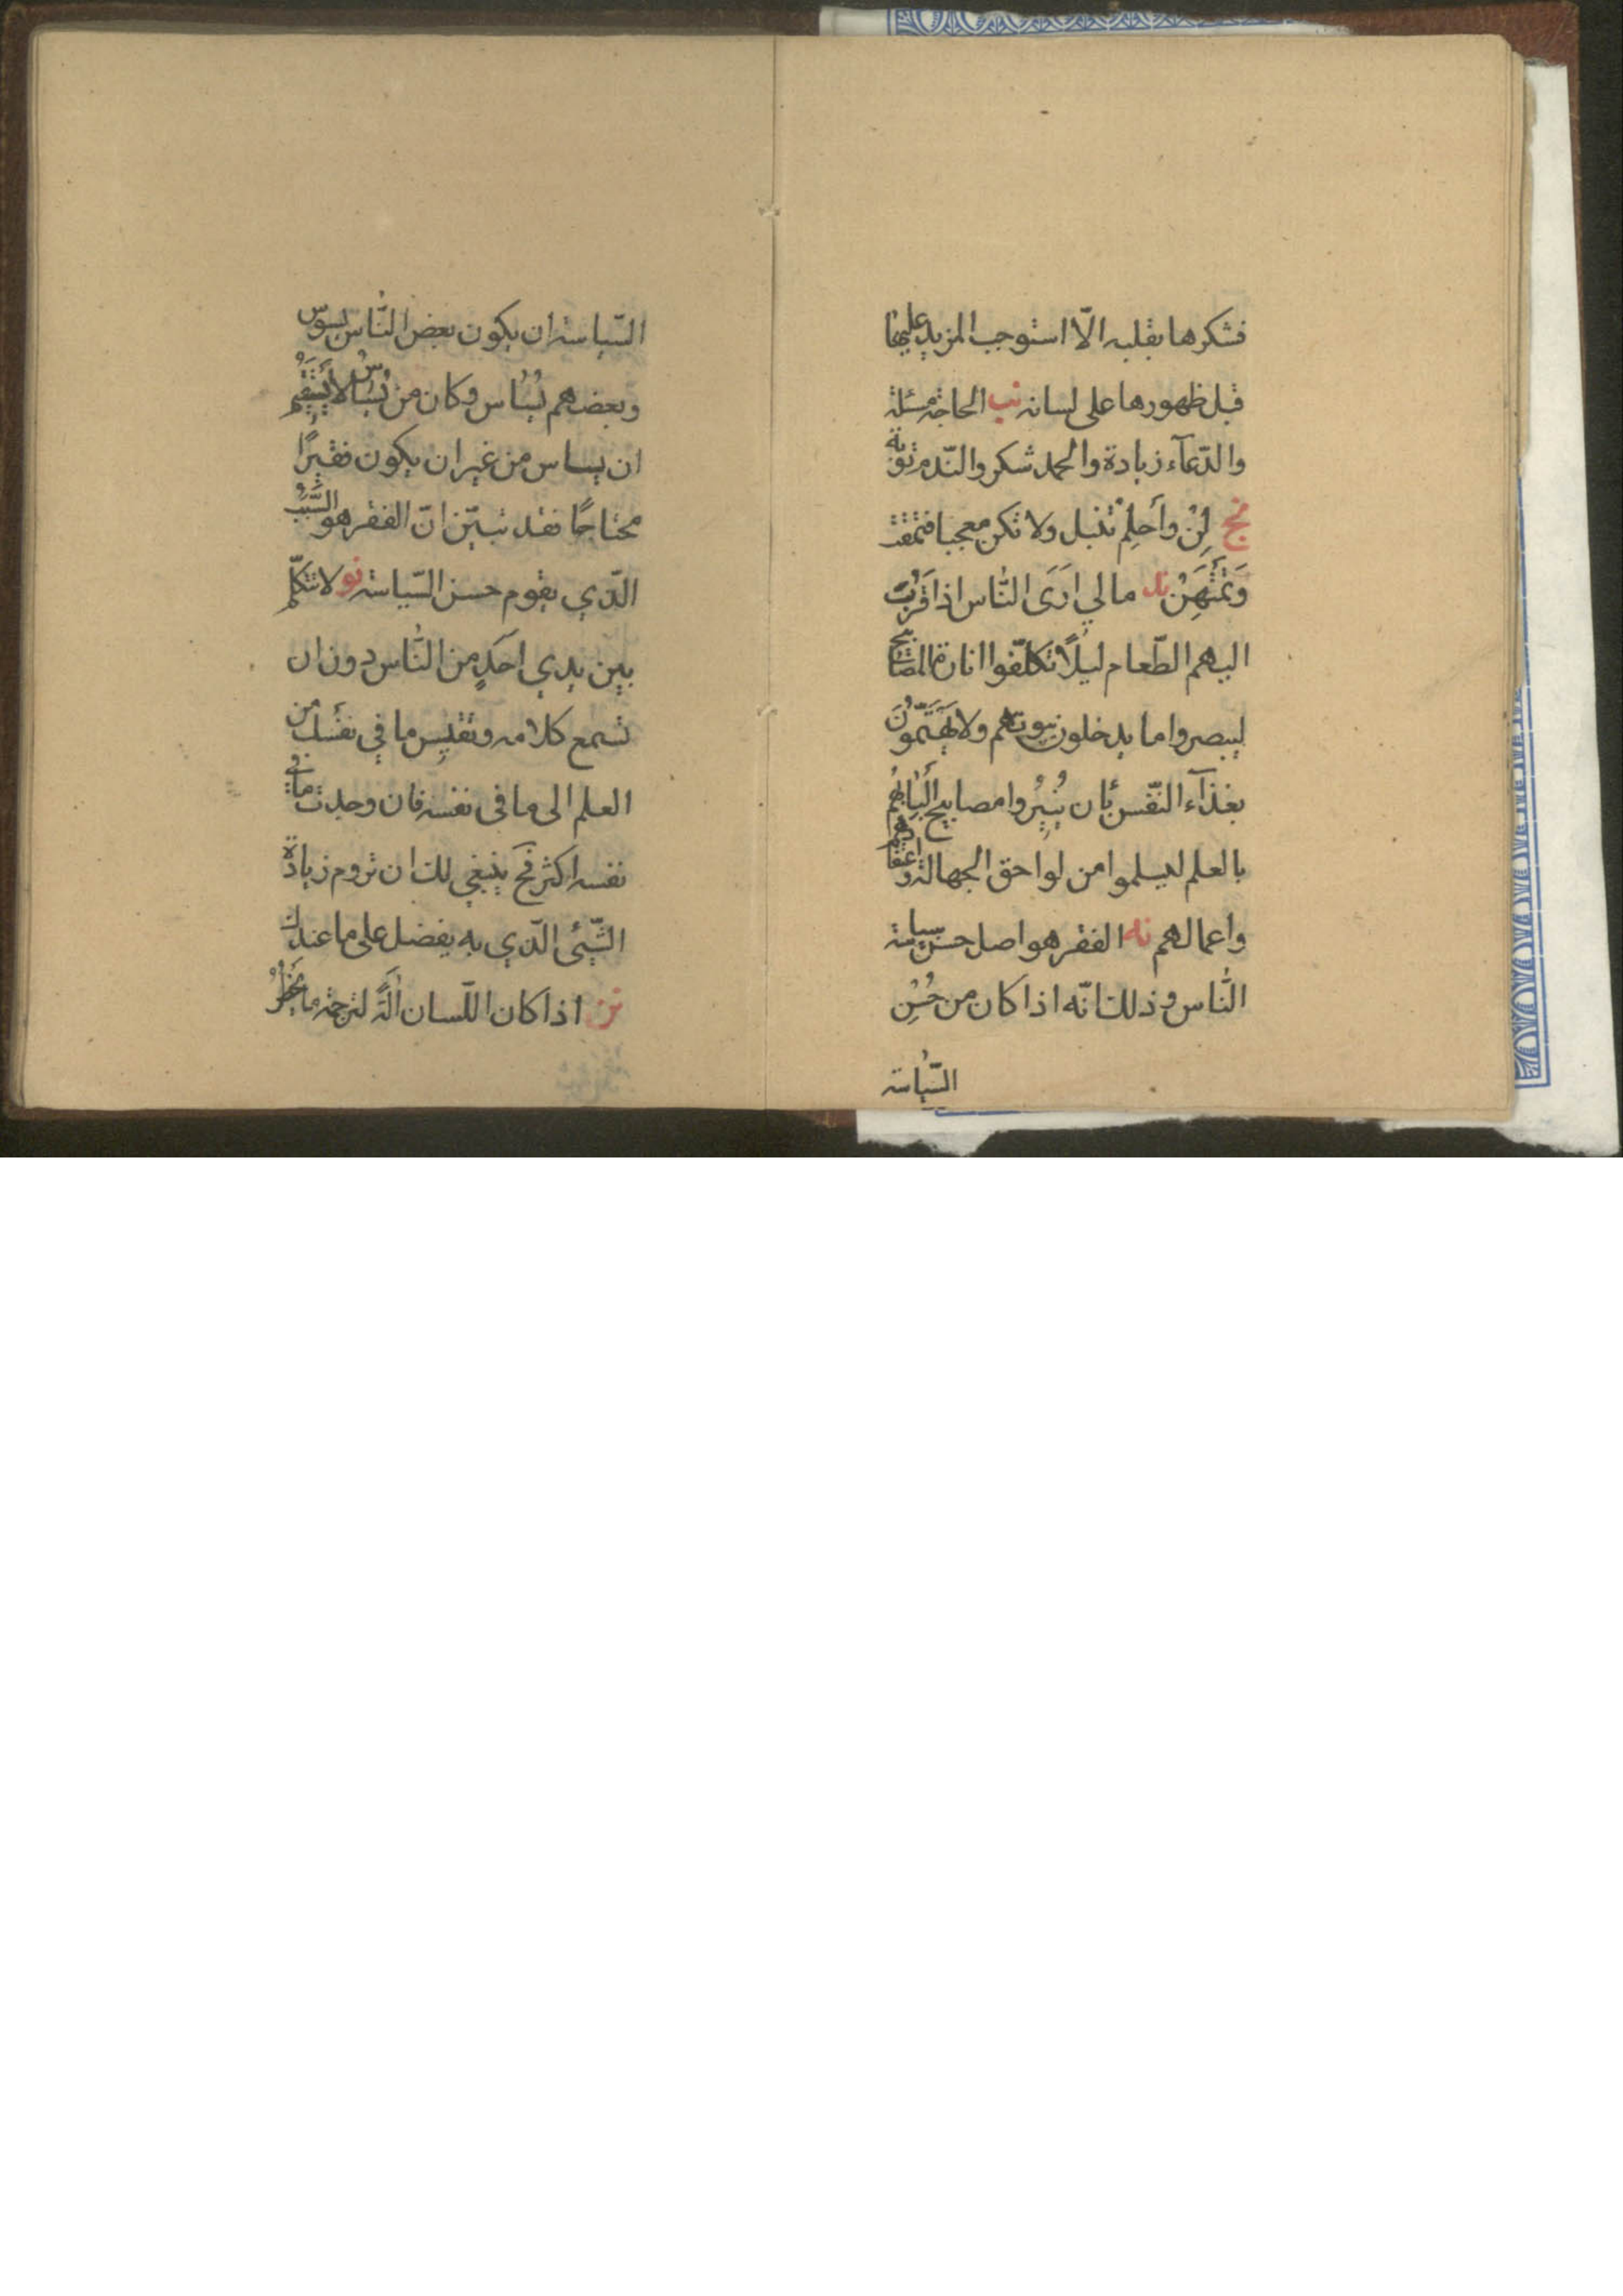 فشكرها بقلبه الّا استوجب المزيد عليها
قبل ظهورها على لسانه نب الحاجة مسئلة
والدّعآء زيادة والحمد شكر والنّدم توبة
نج لِنْ وأَحلِمْ تنبل ولا تكن معجبا فتمقت
وَتُمْتَهَنْ ند ما لي ارَى النّاس اذا قَرُبَ
اليهم الطّعام ليلًا تكلّفوا انارة المصابيح
ليبصروا ما يدخلون بيوتهم ولا يَهْتَمّونَ
بغذآء النّفس بأن يُنيرُوا مصابيح أَلْبابهُم
بالعلم ليسلموا من لواحق الجهالة واعتقادهم
واعمالهم نه الفقر هو اصل حسن سياسة
النّاس وذلك انّه اذا كان من حُسْنِ
السّياسة
السّياسة ان يكون بعض النّاس يسوّس
وبعضهم يُسٰاس وكان من يُساس لا يَسْتَقيُم
ان يساس من غير ان يكون فقيرًا
محتاجًا فقد تبيّن انّ الفقر هو السَّبَبُ
الّذي يقوم حسن السّياسة نو لا تتكلّم
بين يدي احَدٍ من النّاس دون ان
تسمع كلامه وتقيِس ما في نفسك من
العلم الى ما في نفسه فان وجدت ما في
نفسه اكثر فح ينبغي لك ان تروم زيادة
الشّيئ الّذي به يفضل على ما عندك
نز اذا كان اللّسان آلَةً لترجمة ما يَخْطُرُ